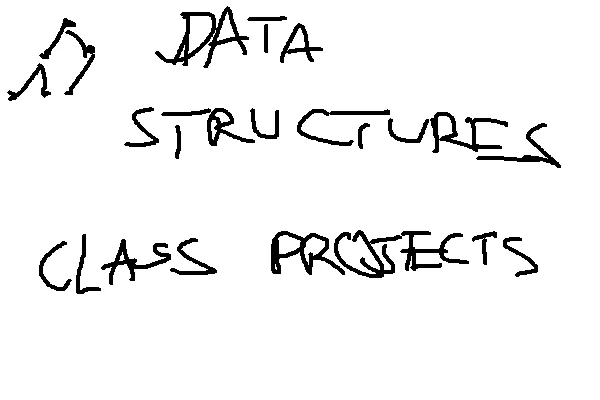 DATA
STRUCTURES
CLASS PROJECTS